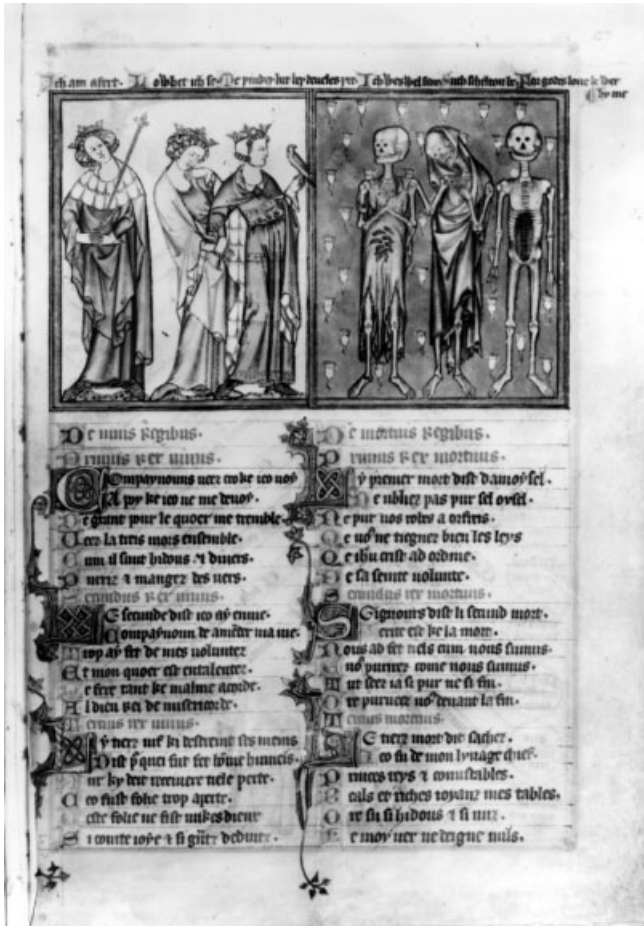 Ich am afert. Lo whet ich se. Me þinkes hit bey deueles þre. Ich wes wel fair. Such scheltou be. For godes loue be wer
by me
De uiuis regibus.
Primus rex uiuus.
Compaynouns ueez ceo ke ieo uoy
A poy ke ieo ne me deuoy.
De grant pour le quoer me tremble.
Ueez la treis mors ensemble.
Cum il sunt hidous & diuers.
Purriz & mangez des uers.
Secundus rex uiuus.
Le secunde dist ieo ay enuie.
Compaynoun de amender ma uie.
Trop ay fet de mes uoluntez
Et mon quoer est entalentez.
De fere tant ke malme acorde.
Al dieu rei de misericorde.
Tercius rex uiuus.
Ly tierz uif ki destreint ses meins
Dist pur quei fut fet home humeins.
Ceo fust folie trop aperte.
Ceste folie ne fist unkes dieux
Si courte ioye & si
De mortuis regibus.
Primus rex mortuus.
Ly premer mort dist damoysel.
Ne ubliez pas pur sel oysel.
Ne pur uos robes a orfreis.
Qe uous ne tiegnez bien les leys
Qe ihu crist ad ordine.
De sa seinte uolunte.
Secundus rex mortuus.
Seignours dist li secund mort.
Uerite est ke la mort.
Nous ad fet tels cum nous sumus.
Et uous purrirez come nous sumus.
Tut seez ia si pur ne si fin.
deuant la fin.
Tercius mortuus.
Le tierz mort dit sachez.
Ieo fu de mon lynage chief.
Princes reys & conustables.
Beals et riches ioyanz mes tables.
Ore su si hidous & si nuz.
Ke moy uer ne deigne nuls.